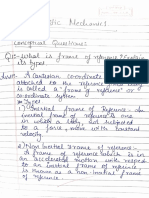 Mechanics
Conceptual Questions
Q:- what is frame of refrence?
its types
Ans:- A cartesian coordinate
attached to the refrence
is called a "frame of refrence" or
co-ordinate system
Types
1) Inertial frame of Refrence:- An
inertial frame of refrence is one
in which a body, not subjected
to a force, moves with constant
velocity
2) Non Inertial frame of refrence:-
A frame of refrence which is in
an accelerated motion with respect
to an inertial frame of refrence is
known as a non inertial frame
of refrence.